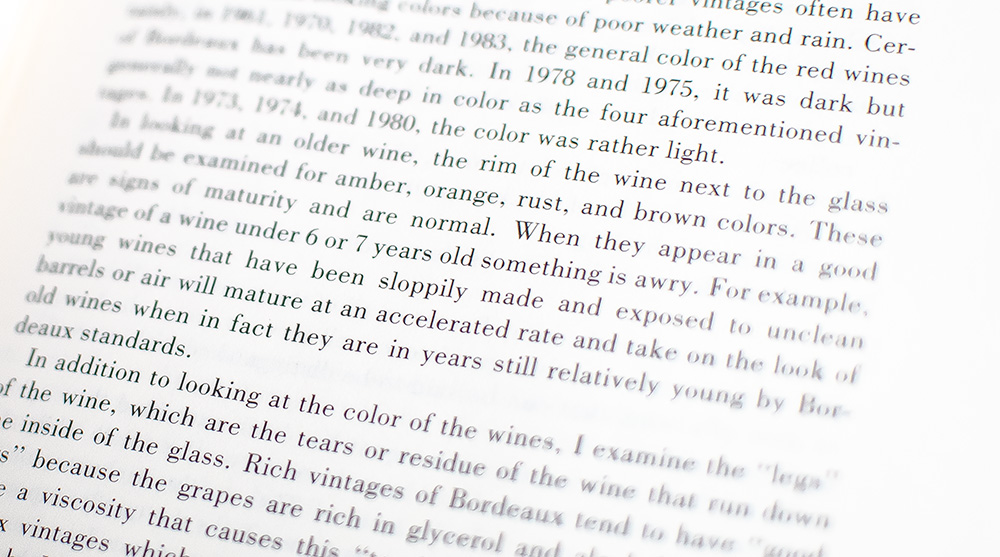 vintages often have
colors because of poor weather and rain. Cer-
in 1961, 1970, 1982, and 1983, the general color of the red wines
of Bordeaux has been very dark. In 1978 and 1975, it was dark but
generally not nearly as deep in color as the four aforementioned vin-
tages. In 1973, 1974, and 1980, the color was rather light.
In looking at an older wine, the rim of the wine next to the glass
should be examined for amber, orange, rust, and brown colors. These
are signs of maturity and are normal. When they appear in a good
vintage of a wine under 6 or 7 years old something is awry. For example,
young wines that have been sloppily made and exposed to unclean
barrels or air will mature at an accelerated rate and take on the look of
old wines when in fact they are in years still relatively young by Bor-
deaux standards.
In addition to looking at the color of the wines, I examine the "legs"
of the wine, which are the tears or residue of the wine that run down
inside of the glass. Rich vintages of Bordeaux tend to have "good
because the grapes are rich in glycerol and
a viscosity that causes this
vintages which